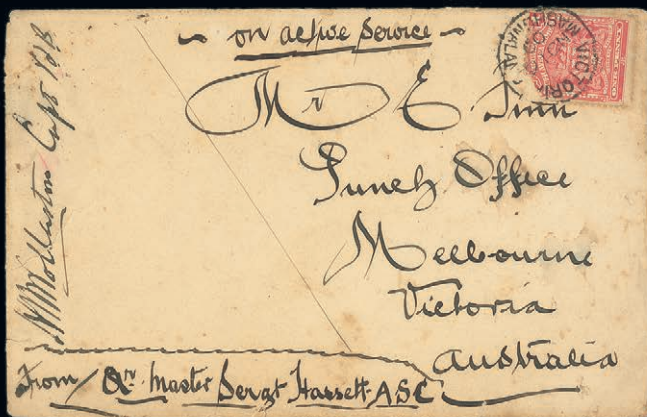 ~ on active Service ~
VICTORIA
MASHONALAND
Mr E. Inn
Punch Office
Melbourne
Victoria
Australia
Capt
From / Qr. Master Sergt Hassett ASC